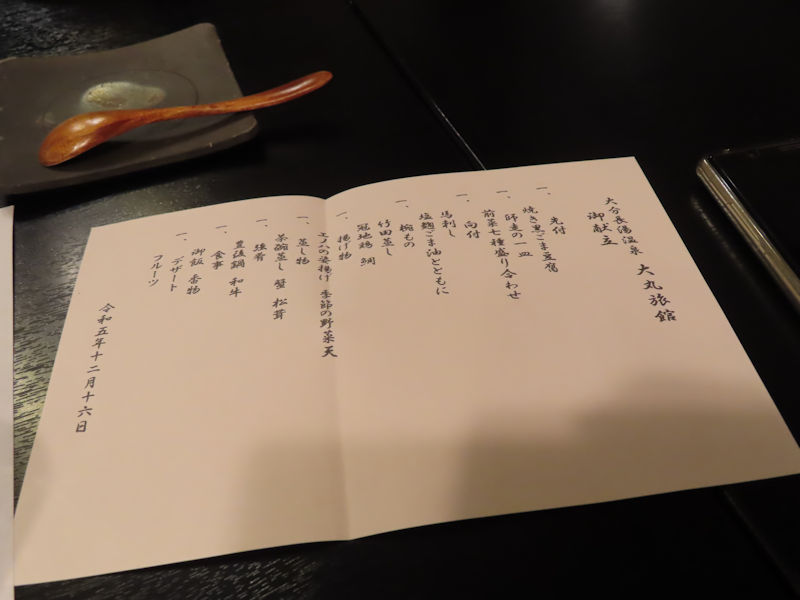 大分長湯温泉 大丸旅館
御献立
一、先付
焼き黒ごま豆腐
一、師走の一皿
前菜七種盛り合わせ
一、向付
馬刺し
塩麹ごま油とともに
一、椀もの
竹田蒸し
冠地鶏 鯛
一、揚げ物
エノハの姿揚げ 季節の野菜天
一、蒸し物
茶碗蒸し 蟹 松茸
一、強肴
豊後鍋 和牛
一、食事
御飯 香物
一、デザート
フルーツ
令和五年十二月十六日